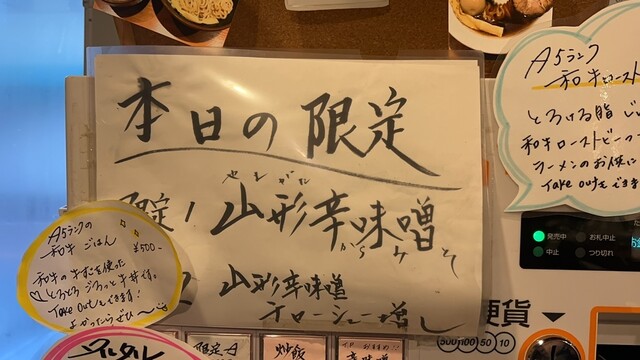 本日の限定
限定1 山形辛味噌
やまがた からみそ
2 山形辛味噌
チャーシュー増し
A5ランクの
和牛ごはん
¥500-
和牛の牛すじを使った
とろとろ ごろっと牛丼です。
Take outもできます!
よかったらぜひ〜
A5ランク
和牛ロースト
とろける脂
和牛ローストビーフ
ラーメンのお供に
Take outもできま
発売中
お札中止
中止
つり切れ
硬貨
500 100 50 10
限定A
炒飯
辛味噌